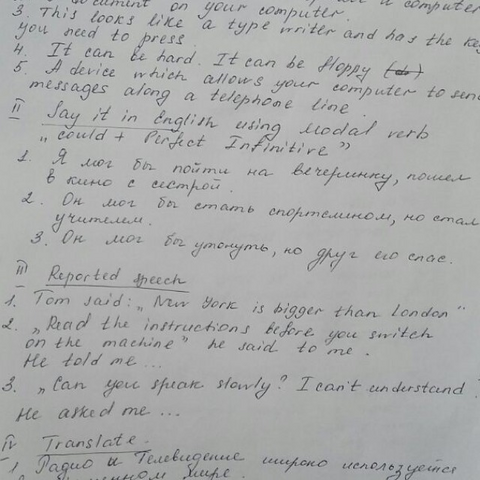 document on your computer.
3. This looks like a type writer and has the key
you need to press.
4. It can be hard. It can be floppy
5. A device which allows your computer to send
messages along a telephone line.
II Say it in English using modal verb
„could + Perfect Infinitive”
1. Я мог бы пойти на вечеринку, пошел
в кино с сестрой.
2. Он мог бы стать спортсменом, но стал
учителем.
3. Он мог бы утонуть, но друг его спас.
III Reported speech
1. Tom said: „New York is bigger than London”
2. „Read the instructions before you switch
on the machine” he said to me.
He told me ...
3. „Can you speak slowly? I can't understand
He asked me ...
IV Translate.
1 Радио и Телевидение широко используется
мире.